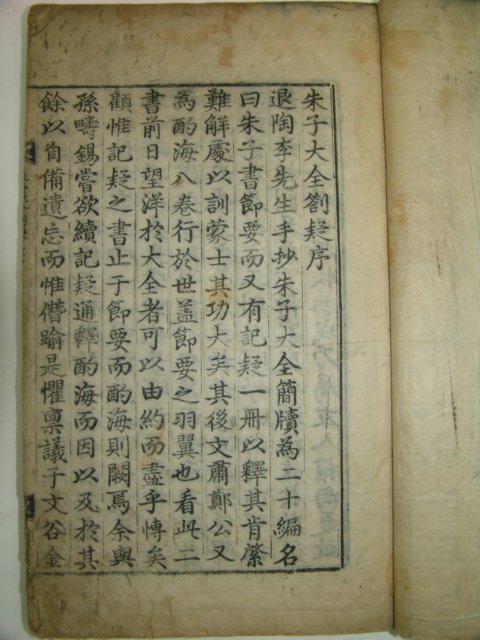 朱子大全劄疑序
退陶李先生手抄朱子大全簡牘為二十編名
曰朱子書節要而又有記疑一冊以釋其肯綮
難解處以訓蒙士其功大矣其後文肅鄭公又
為酌海八卷行於世蓋節要之羽翼也看此二
書前日望洋於大全者可以由約而盡乎博矣
顧惟記疑之書止于節要而酌海則闕焉余與
孫疇錫嘗欲續記疑通釋酌海而因以及於其
餘以自備遺忘而惟僭踰是懼稟議于文谷金